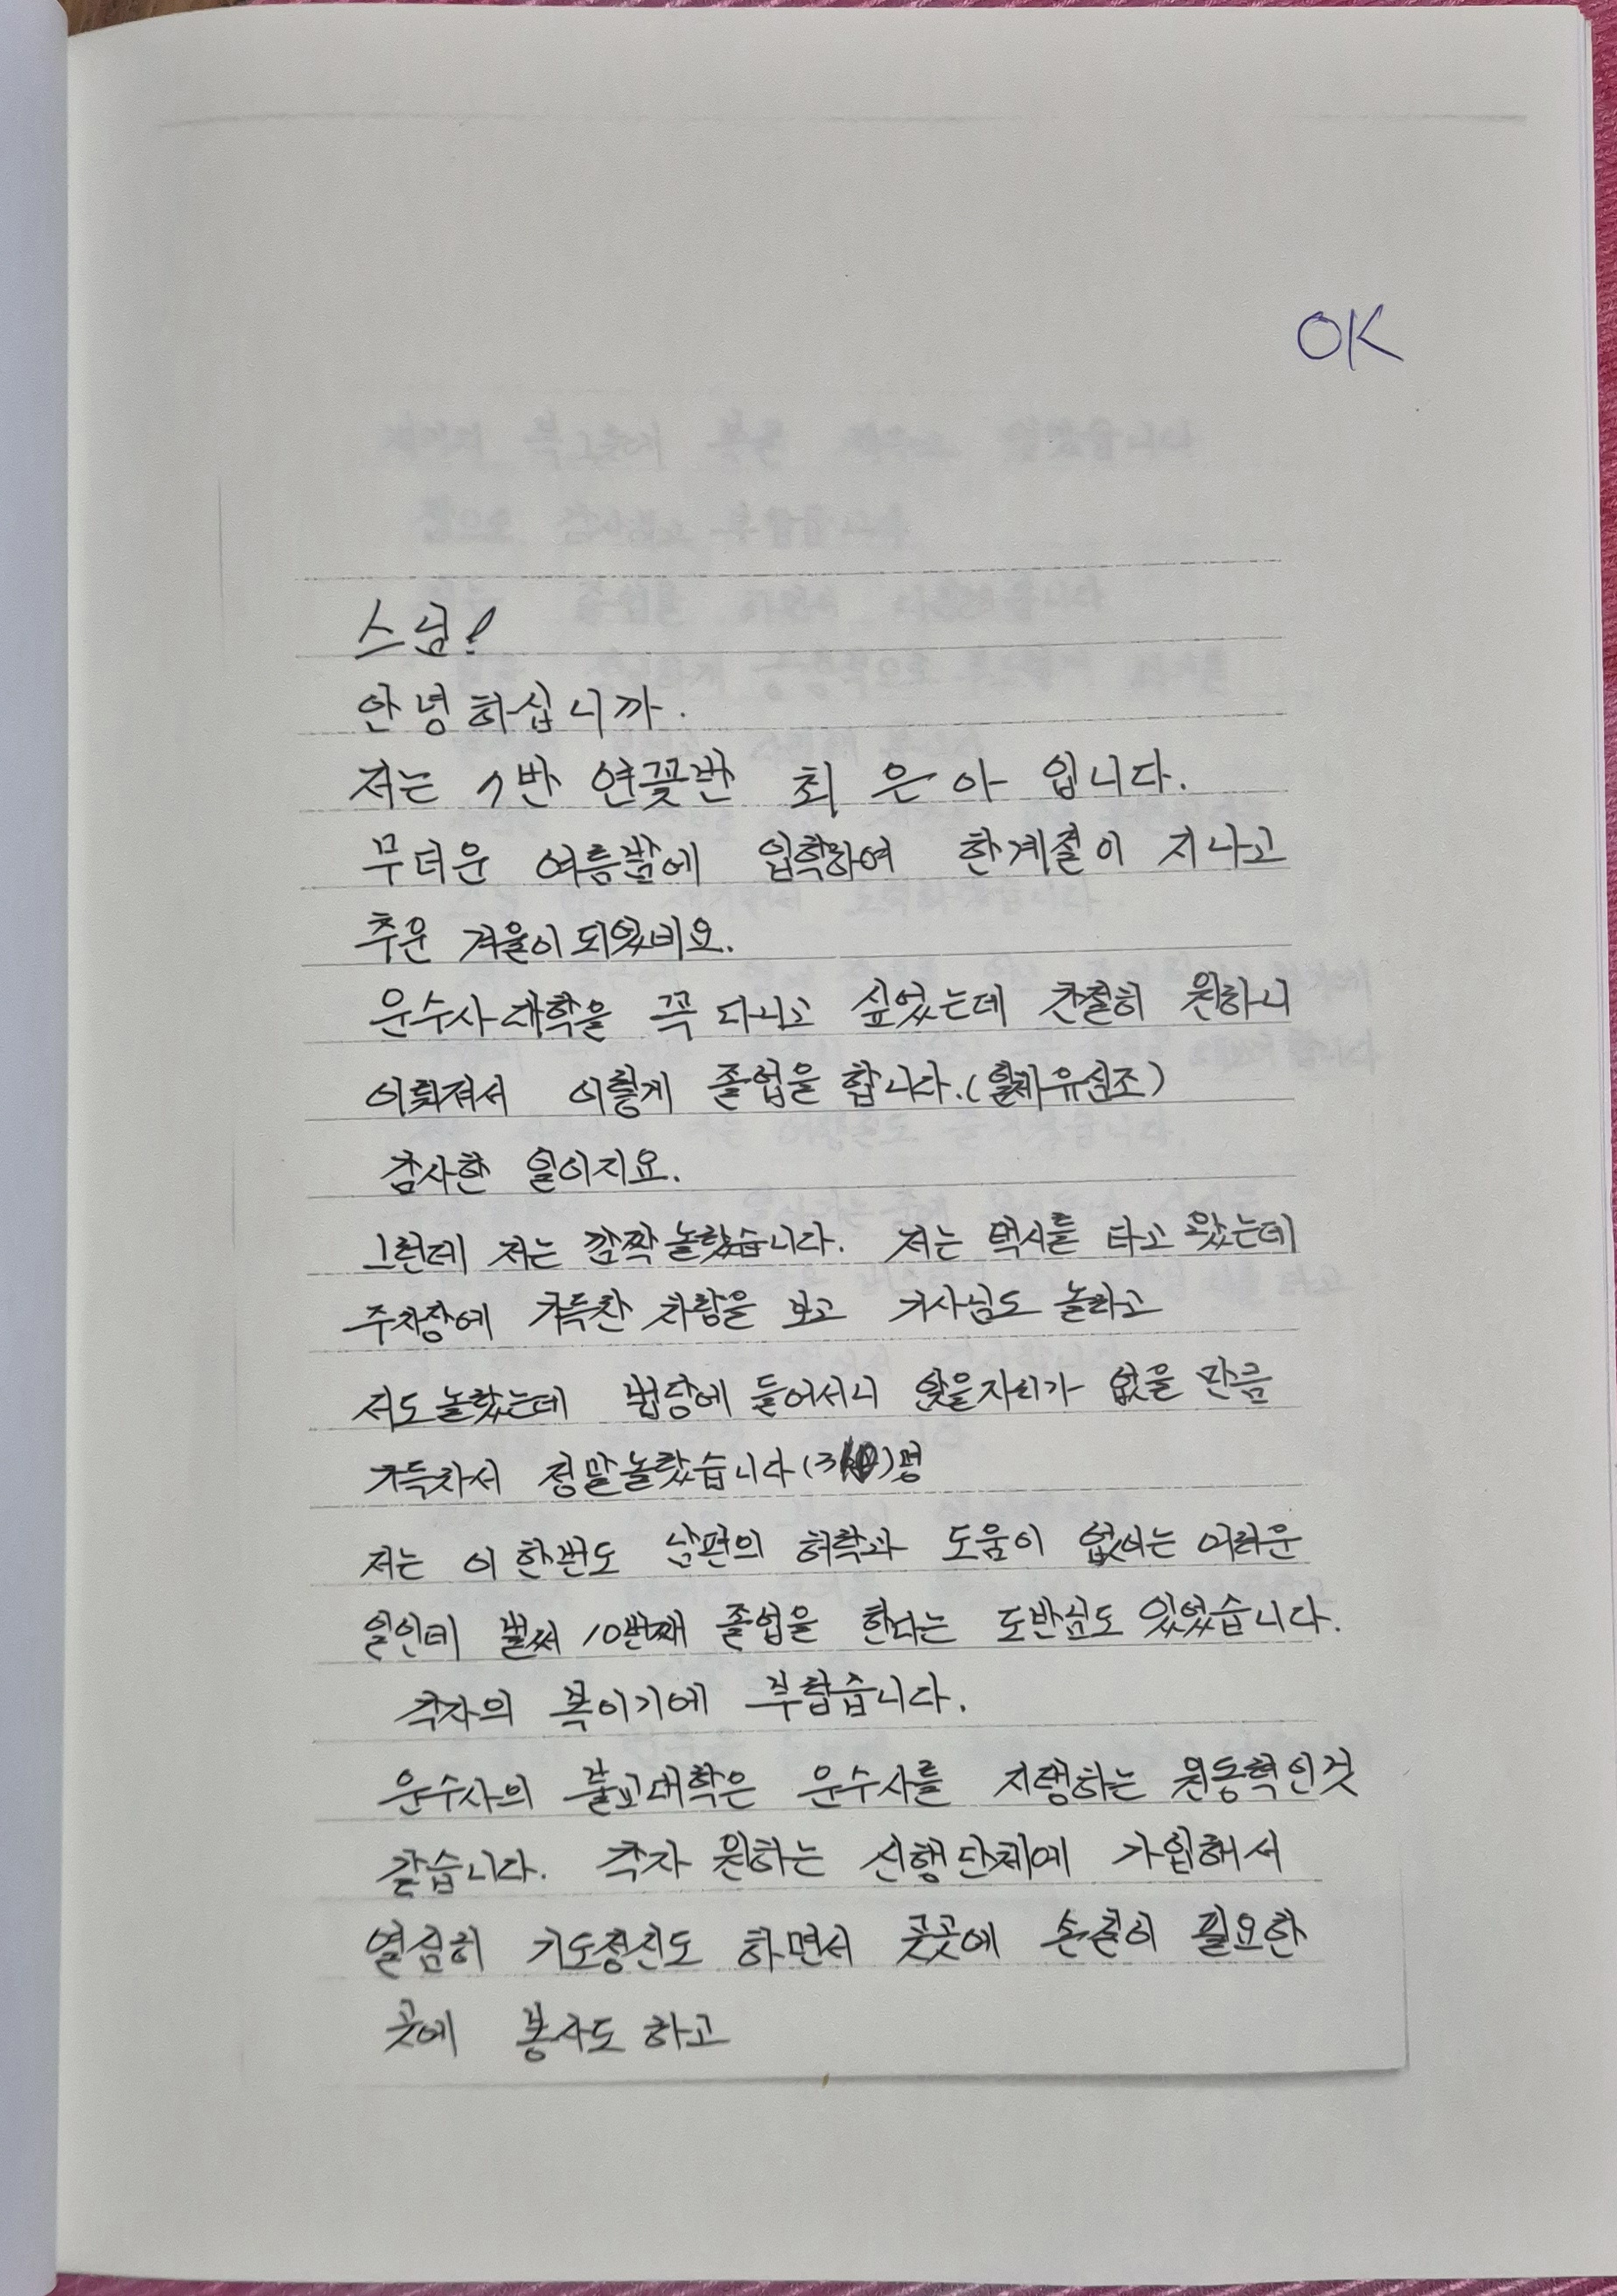 OK
스님!
안녕하십니까.
저는 1반 연꽃반 최 은 아 입니다.
무더운 여름밤에 입학하여 한계절이 지나고
추운 겨울이 되었네요.
운수사대학을 꼭 다니고 싶었는데 간절히 원하니
이뤄져서 이렇게 졸업을 합니다.(일체유심조)
감사한 일이지요.
그런데 저는 깜짝놀랐습니다. 저는 택시를 타고 왔는데
주차장에 가득찬 차량을 보고 기사님도 놀라고
저도놀랐는데 법당에 들어서니 앉을자리가 없을 만큼
가득차서 정말놀랐습니다 명
저는 이 한번도 남편의 허락과 도움이 없이는 어려운
일인데 벌써 10번째 졸업을 한다는 도반님도 있었습니다.
각자의 복이기에 부럽습니다.
운수사의 불교대학은 운수사를 지탱하는 원동력인것
같습니다. 각자 원하는 신행단체에 가입해서
열심히 기도정진도 하면서 곳곳에 손길이 필요한
곳에 봉사도 하고